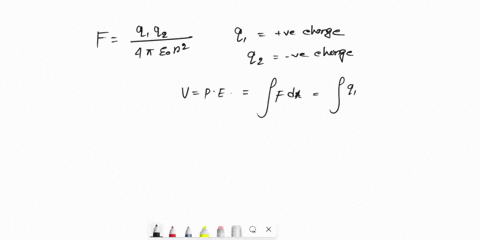 F = q₁ q₂ / 4 π ε₀ r² q₁ = +ve charge
q₂ = -ve charge
V = P.E. = ∫ F dx = ∫ q₁